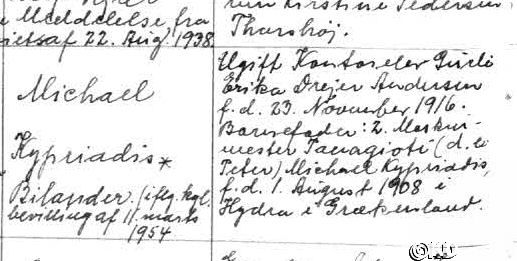 Meddelelse fra
af 22. Aug. 1938.
Thorshøj.
Michael
Kypriadis*
Bilander. (iflg. kgl.
bevilling af 11. marts
1954
Ugift Kontorelev Gurli
Erika Drejer Andersen
f. d. 23. November 1916.
Barnefader: 2. Maskin-
mester Panagioti (d. e.
Peter) Michael Kypriadis,
f. d. 1. August 1908 i
Hydra i Grækenland.